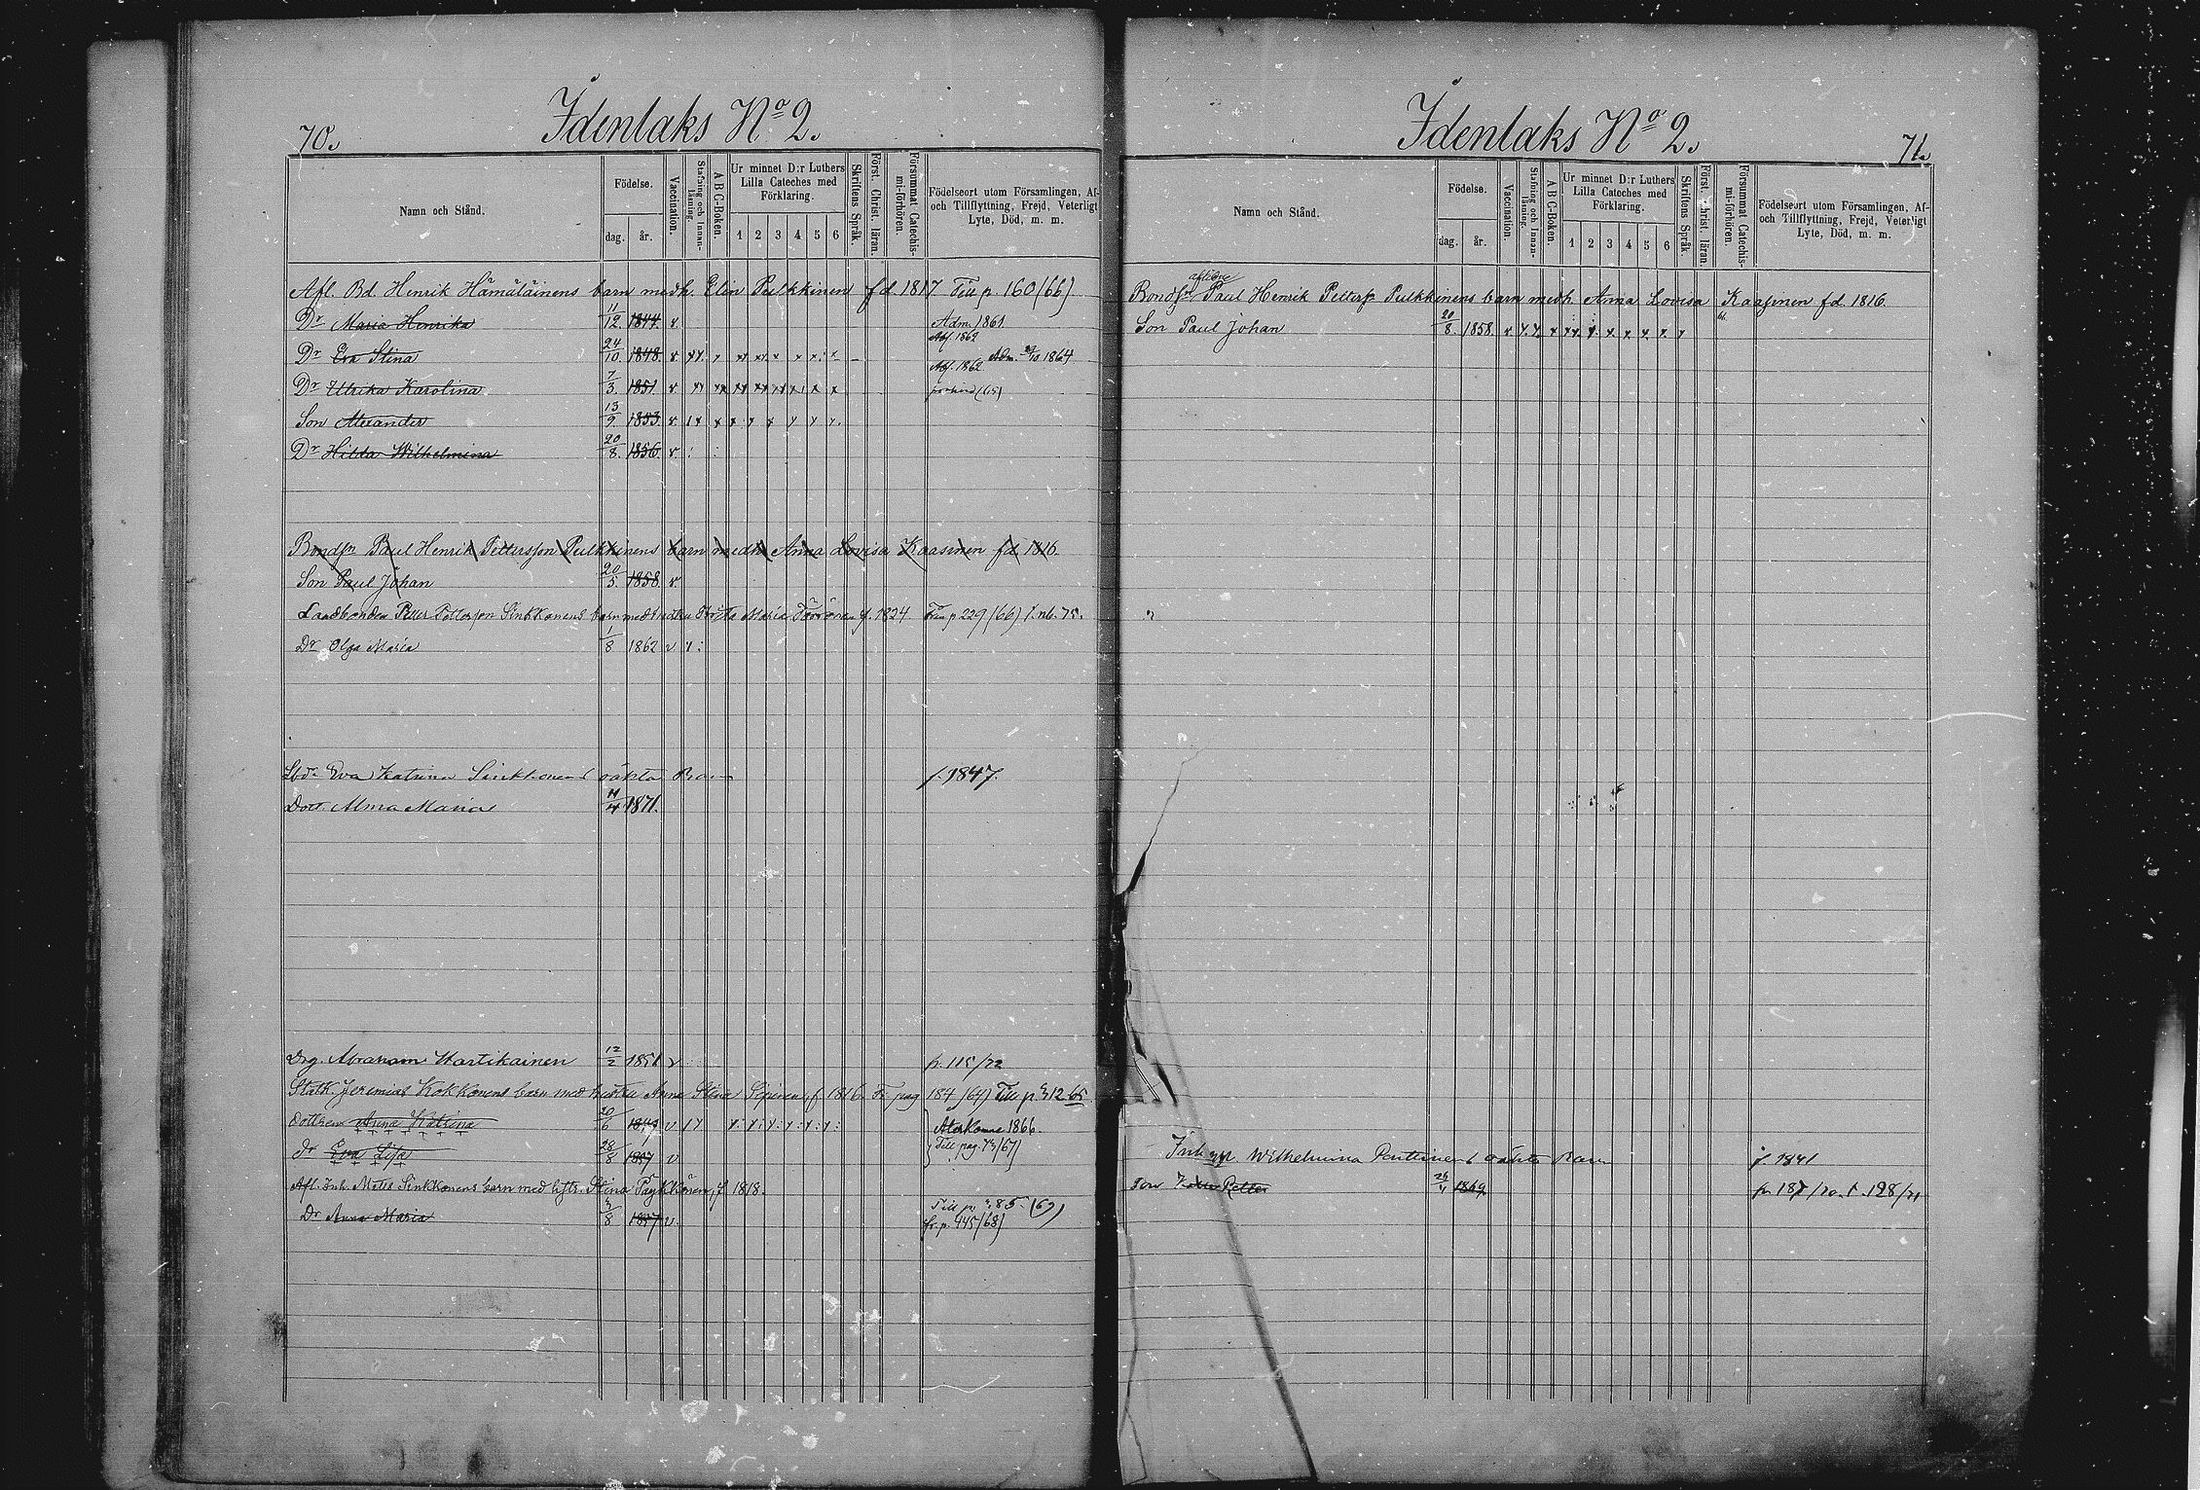 70.
Idenlaks No 2.
Namn och Stånd.
Födelse.
dag.
år.
Vaccination.
Stafning och Innan-läsning.
A B C-Boken.
Ur minnet D:r Luthers Lilla Cateches med Förklaring.
1 2 3 4 5 6
Skriftens Språk.
Först. Christ. läran.
Försummat Catechis-mi-förhören.
Födelseort utom Församlingen, Af-
och Tillflyttning, Frejd, Veterligt
Lyte, Död, m. m.
Afl. Bd. Henrik Hämäläinens barn medh. Elin Pulkkinen f d. 1817 Till p 160 (66)
Dr Maria Henrika 11/12. 1844. v Adm. 1861
Dr Eva Stina 24/10. 1848. v Abs. 1862 Adm. 1864
Dr Ulrika Karolina 7/3. 1851 v Abs. 1862
Son Alexander 13/9. 1853 v
Dr Hilda Wilhelmina 20/8. 1856. v
Bondsn Paul Henrik Pettersson Pulkkinens barn medh Anna Lovisa Kaasinen fd. 1816
Son Paul Johan 20/5. 1858. v
Landbonden Petter Pettersson Sinkkonens barn med hustru Brita Maria f. 1824 Från p 229 (66) f. nb. 75.
Dr Olga Maria 1/8 1862 v
Eva Katrina Sinkkonens oäkta Barn f. 1847.
Dott. Alma Maria 11/4 1871.
Drg. Abraham Hartikainen 12/2 1851 v fr. 115/72
Statk. Jeremias Kokkonens barn med hustru Anna Stina f 1816. Fr pag 184 (64) Till p. 312 65
Dottren Anna Katrina 20/6 1849 v Återkomne 1866.
Dr Eva Lisa 28/8 1857 v Till pag. 73/67)
Afl. Inh. Mats Sinkkonens barn med hstr. Stina Paykkönen, f 1818.
Dr Anna Maria 3/8 1857 v. Till p. 385. (69)
fr. p. 445/68)
Idenlaks No 2.
71.
Namn och Stånd.
Födelse.
dag.
år.
Vaccination.
Stafning och Innan-läsning.
A B C-Boken.
Ur minnet D:r Luthers Lilla Cateches med Förklaring.
1 2 3 4 5 6
Skriftens Språk.
Först. Christ. läran.
Försummat Catechis-mi-förhören.
Födelseort utom Församlingen, Af-
och Tillflyttning, Frejd, Veterligt
Lyte, Död, m. m.
aflidne
Bondsn Paul Henrik Petterss Pulkkinens barn medh Anna Lovisa Kaasinen f d. 1816
Son Paul Johan 20/8. 1858. v
Inh Wilhelmina Penttinens oäkta Barn f 1841
Son Petter 1869 fr 187/70. f. 198/71